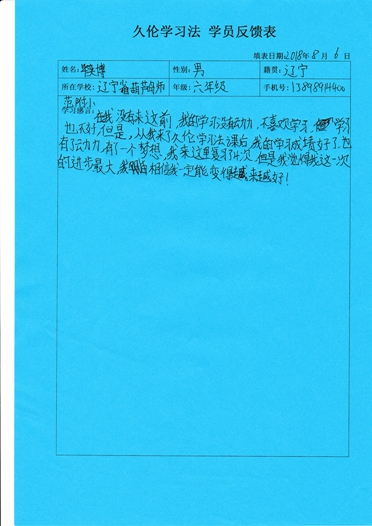 久伦学习法 学员反馈表
填表日期2018年8月6日
姓名: 博 性别: 男 籍贯: 辽宁
所在学校: 辽宁省葫芦岛师 年级: 六年级 手机号: 13898914400
范附小
学习感言: 在我没有来这前,我的学习没有动力,不喜欢学习,学习
也不好,但是,从我来了久伦学习法课后,我的学习成绩好了,也
有了动力,有了一个梦想,我来这里复习4次,但是我觉得我这一次
的进步最大,我相信我一定能变得越来越好!